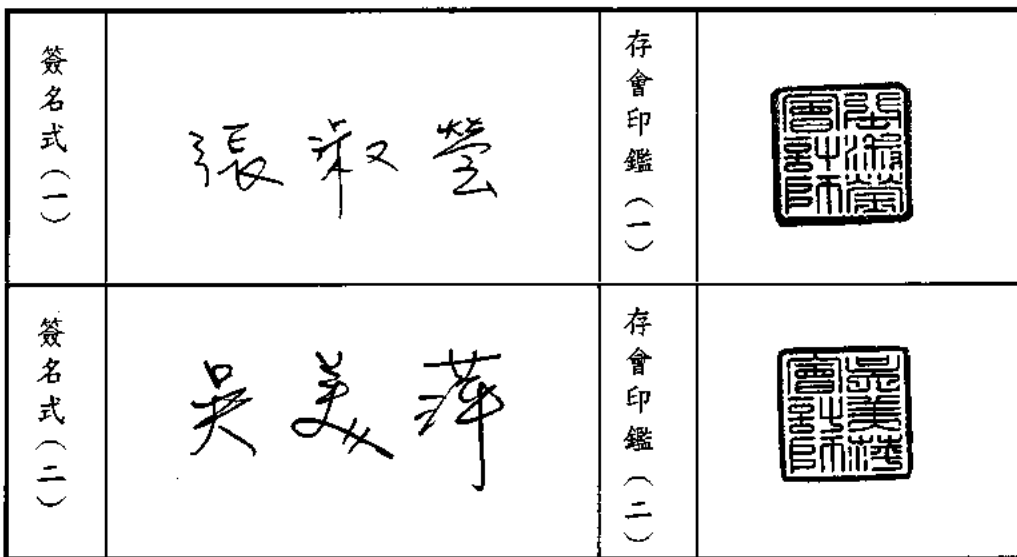 簽名式（一）
張淑瑩
存會印鑑（一）
張淑瑩會計師
簽名式（二）
吳美萍
存會印鑑（二）
吳美萍會計師